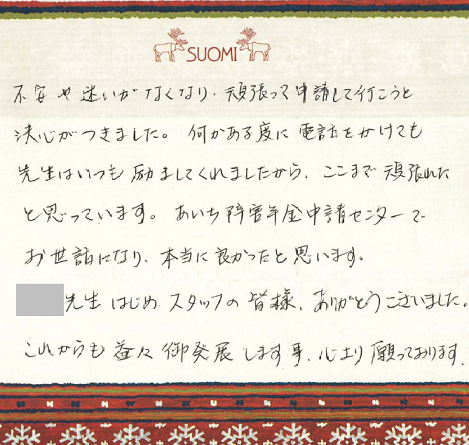 SUOMI
不安や迷いがなくなり、頑張って申請して行こうと
決心がつきました。何かある度に電話をかけても
先生はいつも励ましてくれましたから、ここまで頑張れた
と思っています。あいち障害年金申請センターで
お世話になり、本当に良かったと思います。
先生はじめスタッフの皆様、ありがとうございました。
これからも益々御発展します事、心より願っております。